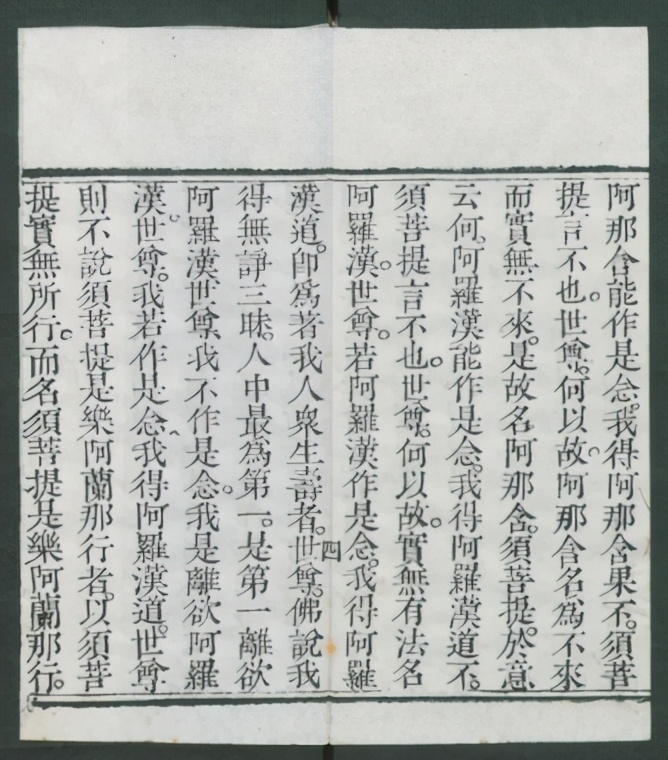 阿那含能作是念。我得阿那含果不。須菩
提言不也。世尊。何以故。阿那含名爲不來
而實無不來。是故名阿那含。須菩提。於意
云何。阿羅漢能作是念。我得阿羅漢道不。
須菩提言不也。世尊。何以故。實無有法名
阿羅漢。世尊。若阿羅漢作是念。我得阿羅
漢道。卽爲著我人衆生壽者。世尊。佛說我
得無諍三昧。人中最爲第一。是第一離欲
阿羅漢。世尊。我不作是念。我是離欲阿羅
漢。世尊。我若作是念。我得阿羅漢道。世尊
則不說須菩提是樂阿蘭那行者。以須菩
提實無所行。而名須菩提是樂阿蘭那行。
四